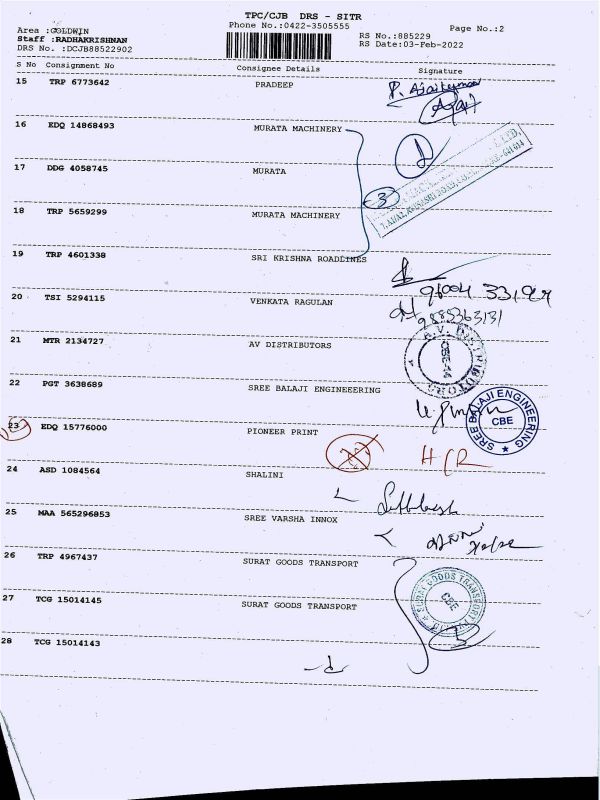 TPC/CJB DRS - SITR
Phone No.:0422-3505555
Page No.:2
Area :GOLDWIN
Staff :RADHAKRISHNAN
DRS No. :DCJB88522902
RS No.:885229
RS Date:03-Feb-2022
S No Consignment No Consignee Details Signature
15 TRP 6773642 PRADEEP
P. Ajaikumar
Ajai
16 EDQ 14868493 MURATA MACHINERY
17 DDG 4058745 MURATA
3
18 TRP 5659299 MURATA MACHINERY
19 TRP 4601338 SRI KRISHNA ROADLINES
20 TSI 5294115 VENKATA RAGULAN
21 MTR 2134727 AV DISTRIBUTORS
A.V. DISTRIBUTORS
22 PGT 3638689 SREE BALAJI ENGINEEERING
SREE BALAJI ENGINEERING
CBE
23 EDQ 15776000 PIONEER PRINT
24 ASD 1084564 SHALINI
25 MAA 565296853 SREE VARSHA INNOX
26 TRP 4967437 SURAT GOODS TRANSPORT
27 TCG 15014145 SURAT GOODS TRANSPORT
SURAT GOODS TRANSPORT
CBE
28 TCG 15014143